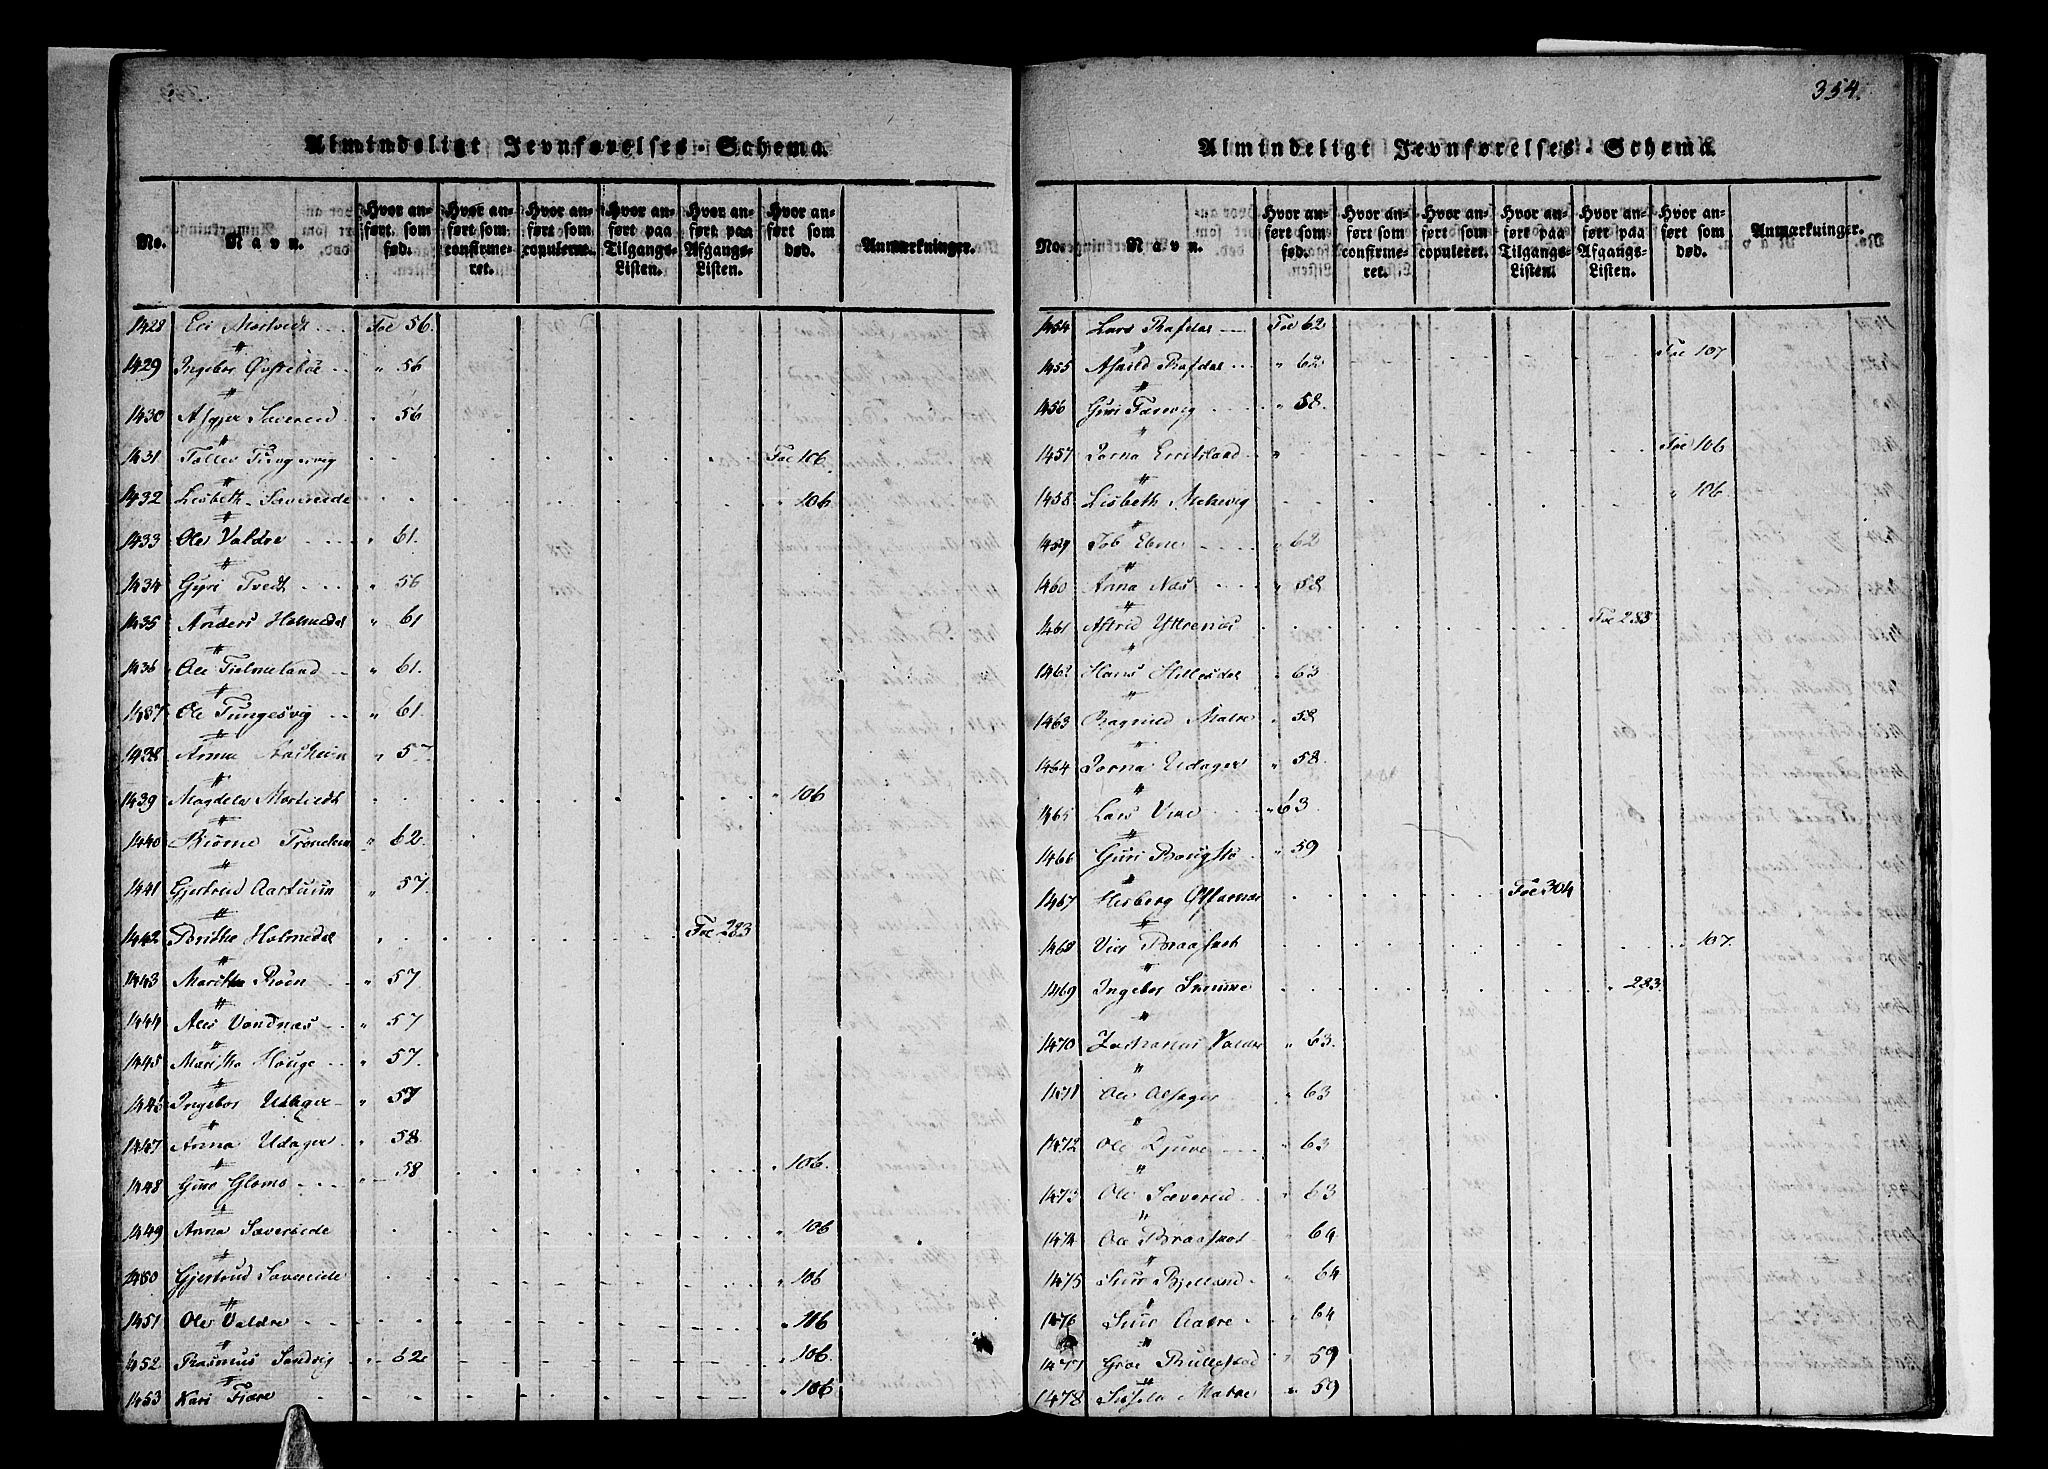 Almindeligt Jevnførelses-Schema
No. Navn. Hvor anført som fød. Hvor anført som confirmeret. Hvor anført som copuleret. Hvor anført paa Tilgangs-Listen. Hvor anført paa Afgangs-Listen. Hvor anført som død. Anmærkninger.
1428 Mortvedt Foe 56.
1429 Ingebor Øvstebøe „ 56
1430 Sævereid „ 56
1431 Tollev Tungesvig Foe 106.
1432 Lisbeth Sævereide „ 106
1433 Ole Valdre „ 61.
1434 Guri Tvedt „ 56
1435 Anders Holmedal „ 61
1436 Ole Tielmeland „ 61.
1437 Ole Tungesvig „ 61.
1438 Anna Aarhuin „ 57.
1439 Magdela Mortvedt „ 106
1440 Biørne „ 62.
1441 Gjertrud Aartuun „ 57.
1442 Holmedal Foe 283
1443 Maritha Røen „ 57
1444 Vandnæs „ 57
1445 Maritha Houge „ 57.
1446 Ingebor Udager „ 57
1447 Anna Udager „ 58.
1448 Guro Gloms „ 58 „ 106.
1449 Anna Sævereide „ 106
1450 Gjertrud Sævereide „ 106
1451 Ole Valdre „ 106
1452 Rasmus Sandvig „ 62. „ 106.
1453 Kari Fiære „ 106
354.
Almindeligt Jevnførelses-Schema
No. Navn. Hvor anført som fød. Hvor anført som confirmeret. Hvor anført som copuleret. Hvor anført paa Tilgangs-Listen. Hvor anført paa Afgangs-Listen. Hvor anført som død. Anmærkninger.
1454 Lars Rafdal Foe 62
1455 Rafdal „ 62 Foe 107
1456 Guri „ 58.
1457 Jorna Foe 106
1458 Lisbeth Melkevig „ 106
1459 Job Ebne „ 62
1460 Anna Næs „ 58
1461 Astrid Yttrenæs Foe 283
1462 Hans Hillesdal „ 63
1463 Ragnild Matre „ 58
1464 Jorna Udager „ 58.
1465 Lars „ 63.
1466 Guri „ 59
1467 Herborg Foe 304
1468 Braatvet „ 107.
1469 Ingebor „ 283.
1470 Zacharias Valdre „ 63.
1471 Ole Alsager „ 63
1472 Ole Djuve „ 63
1473 Ole Sævereid „ 63
1474 Ole Braatvet „ 64
1475 Bjelland „ 64
1476 „ 64
1477 Groe Bullestad „ 59
1478 Matre „ 59